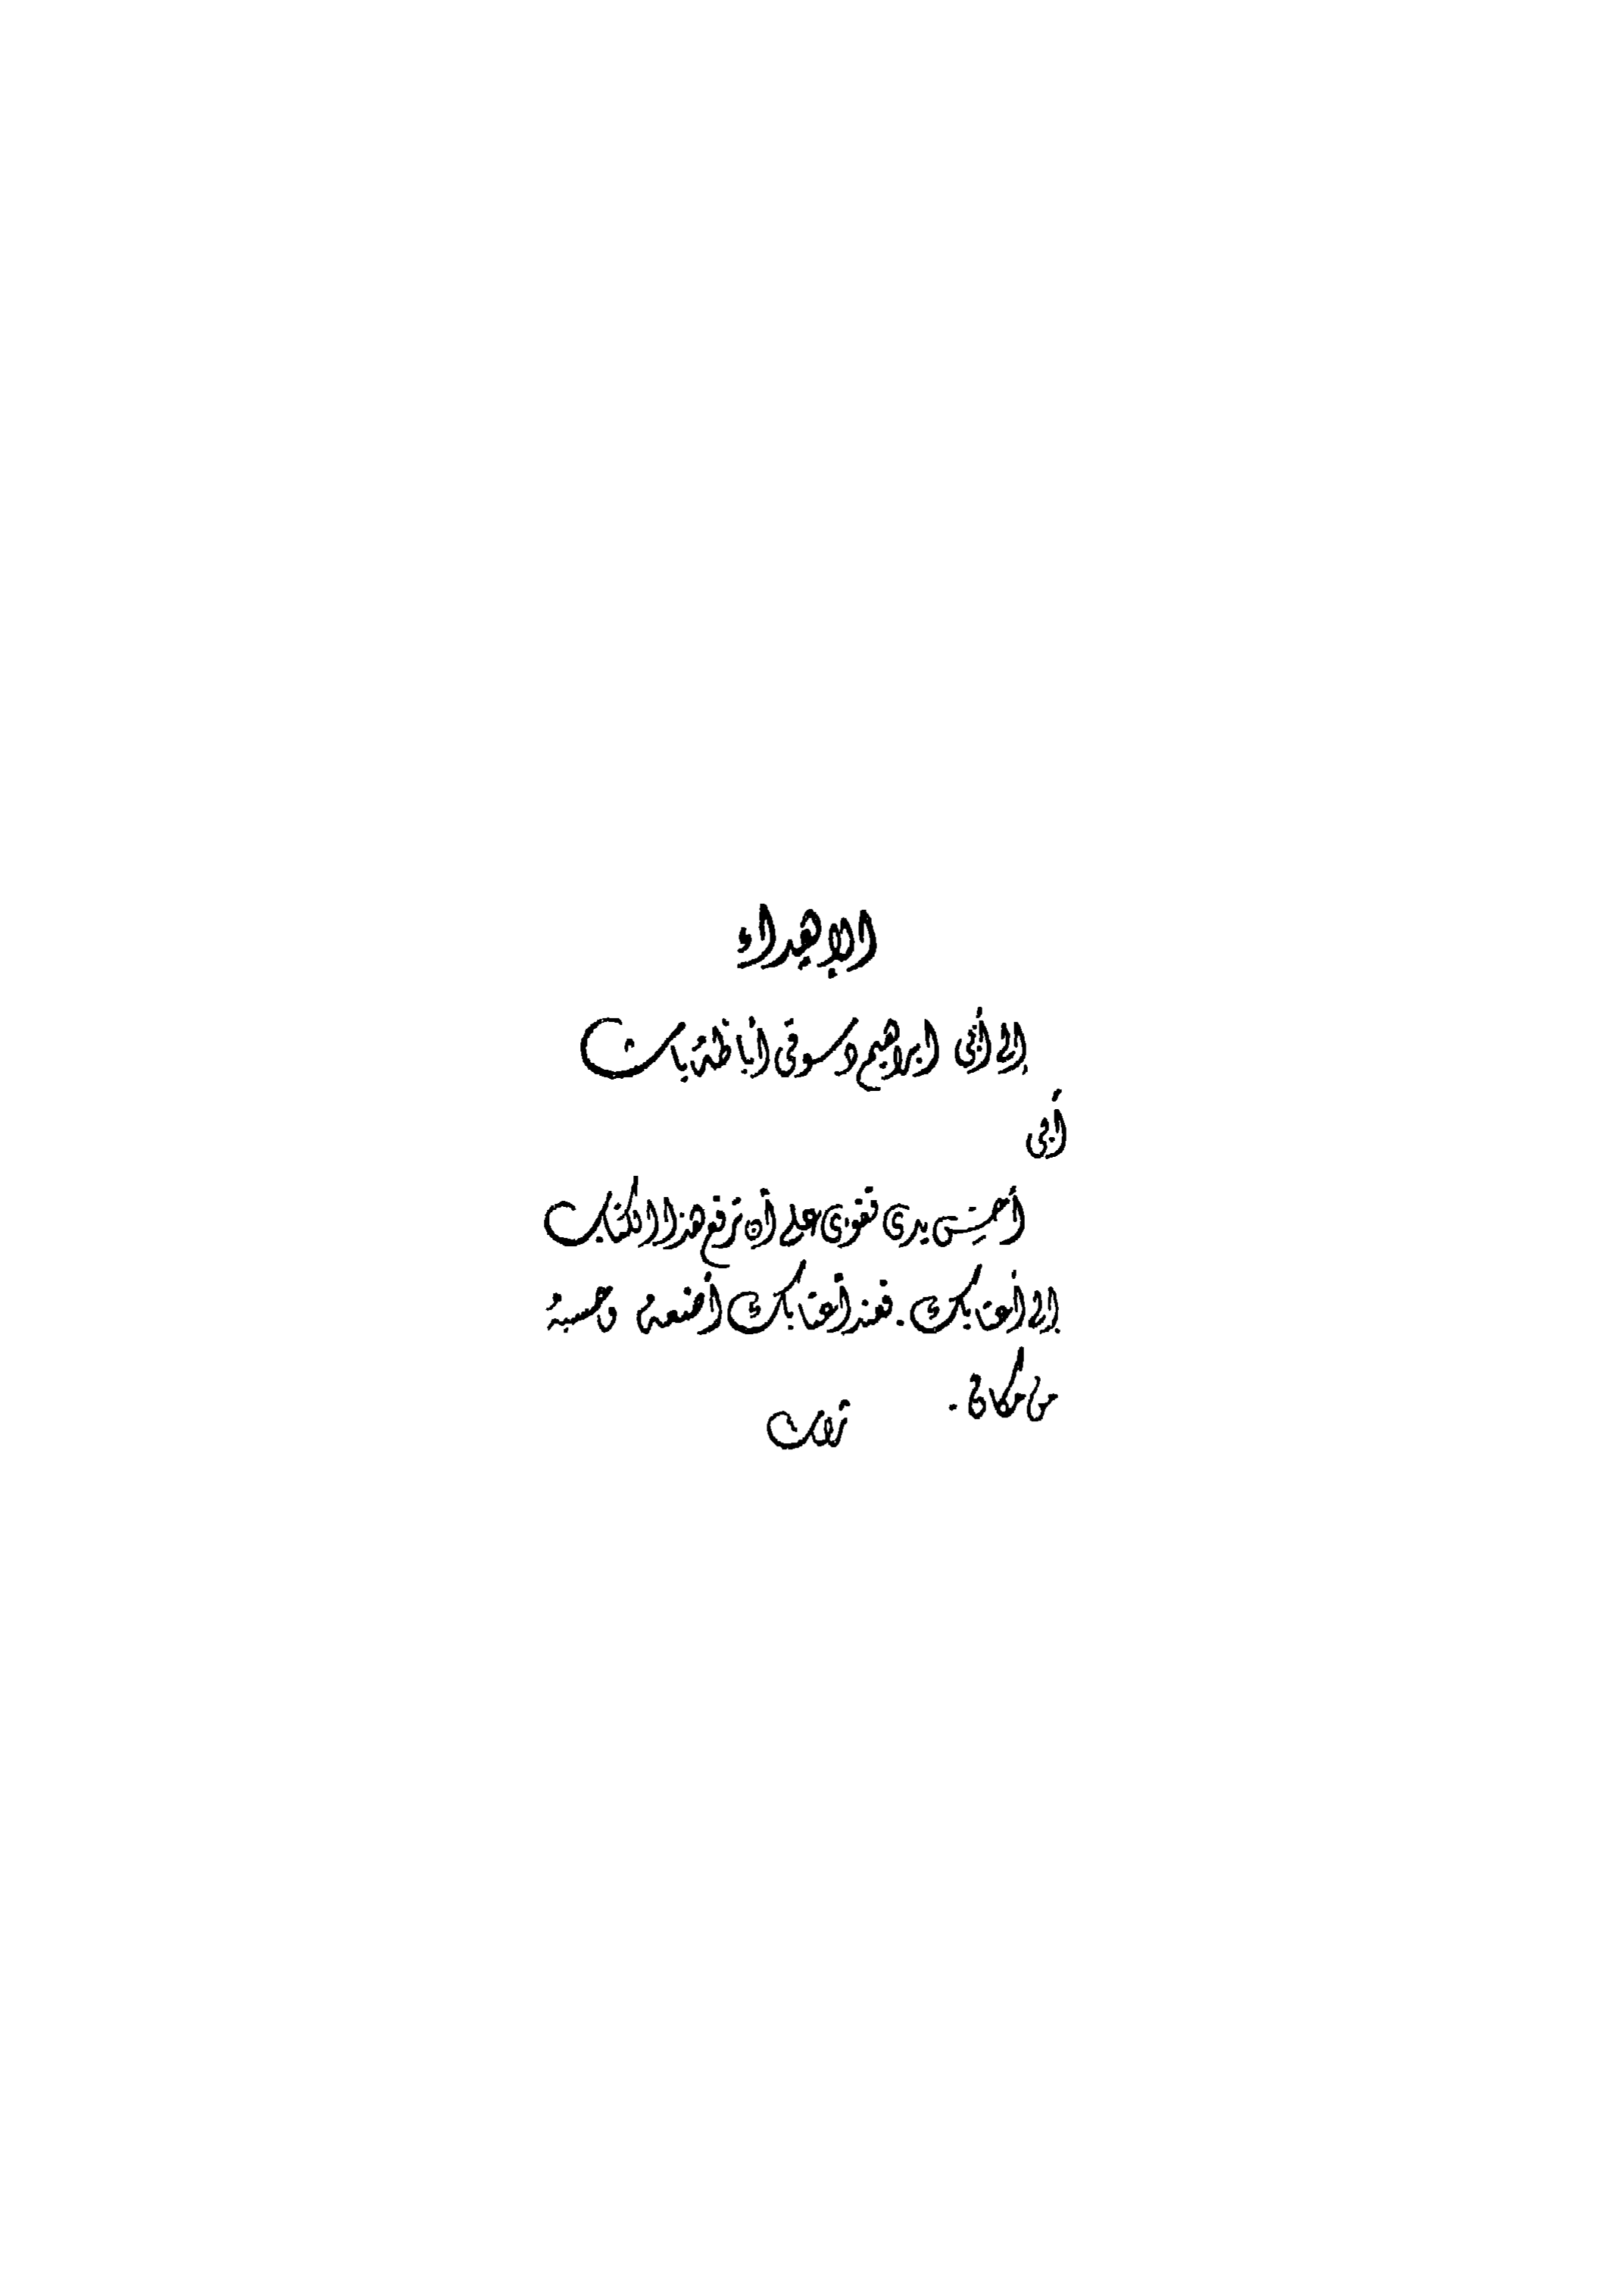 الإهداء
إلى أبى ابراهيم دسوقى أباظة باشا
أبى
أحس يدى تقوى على أن ترفع هذا الكتاب
إلى أعتابك . فعند أعتابك أضعه وحسبه
من مكان .
ثروت